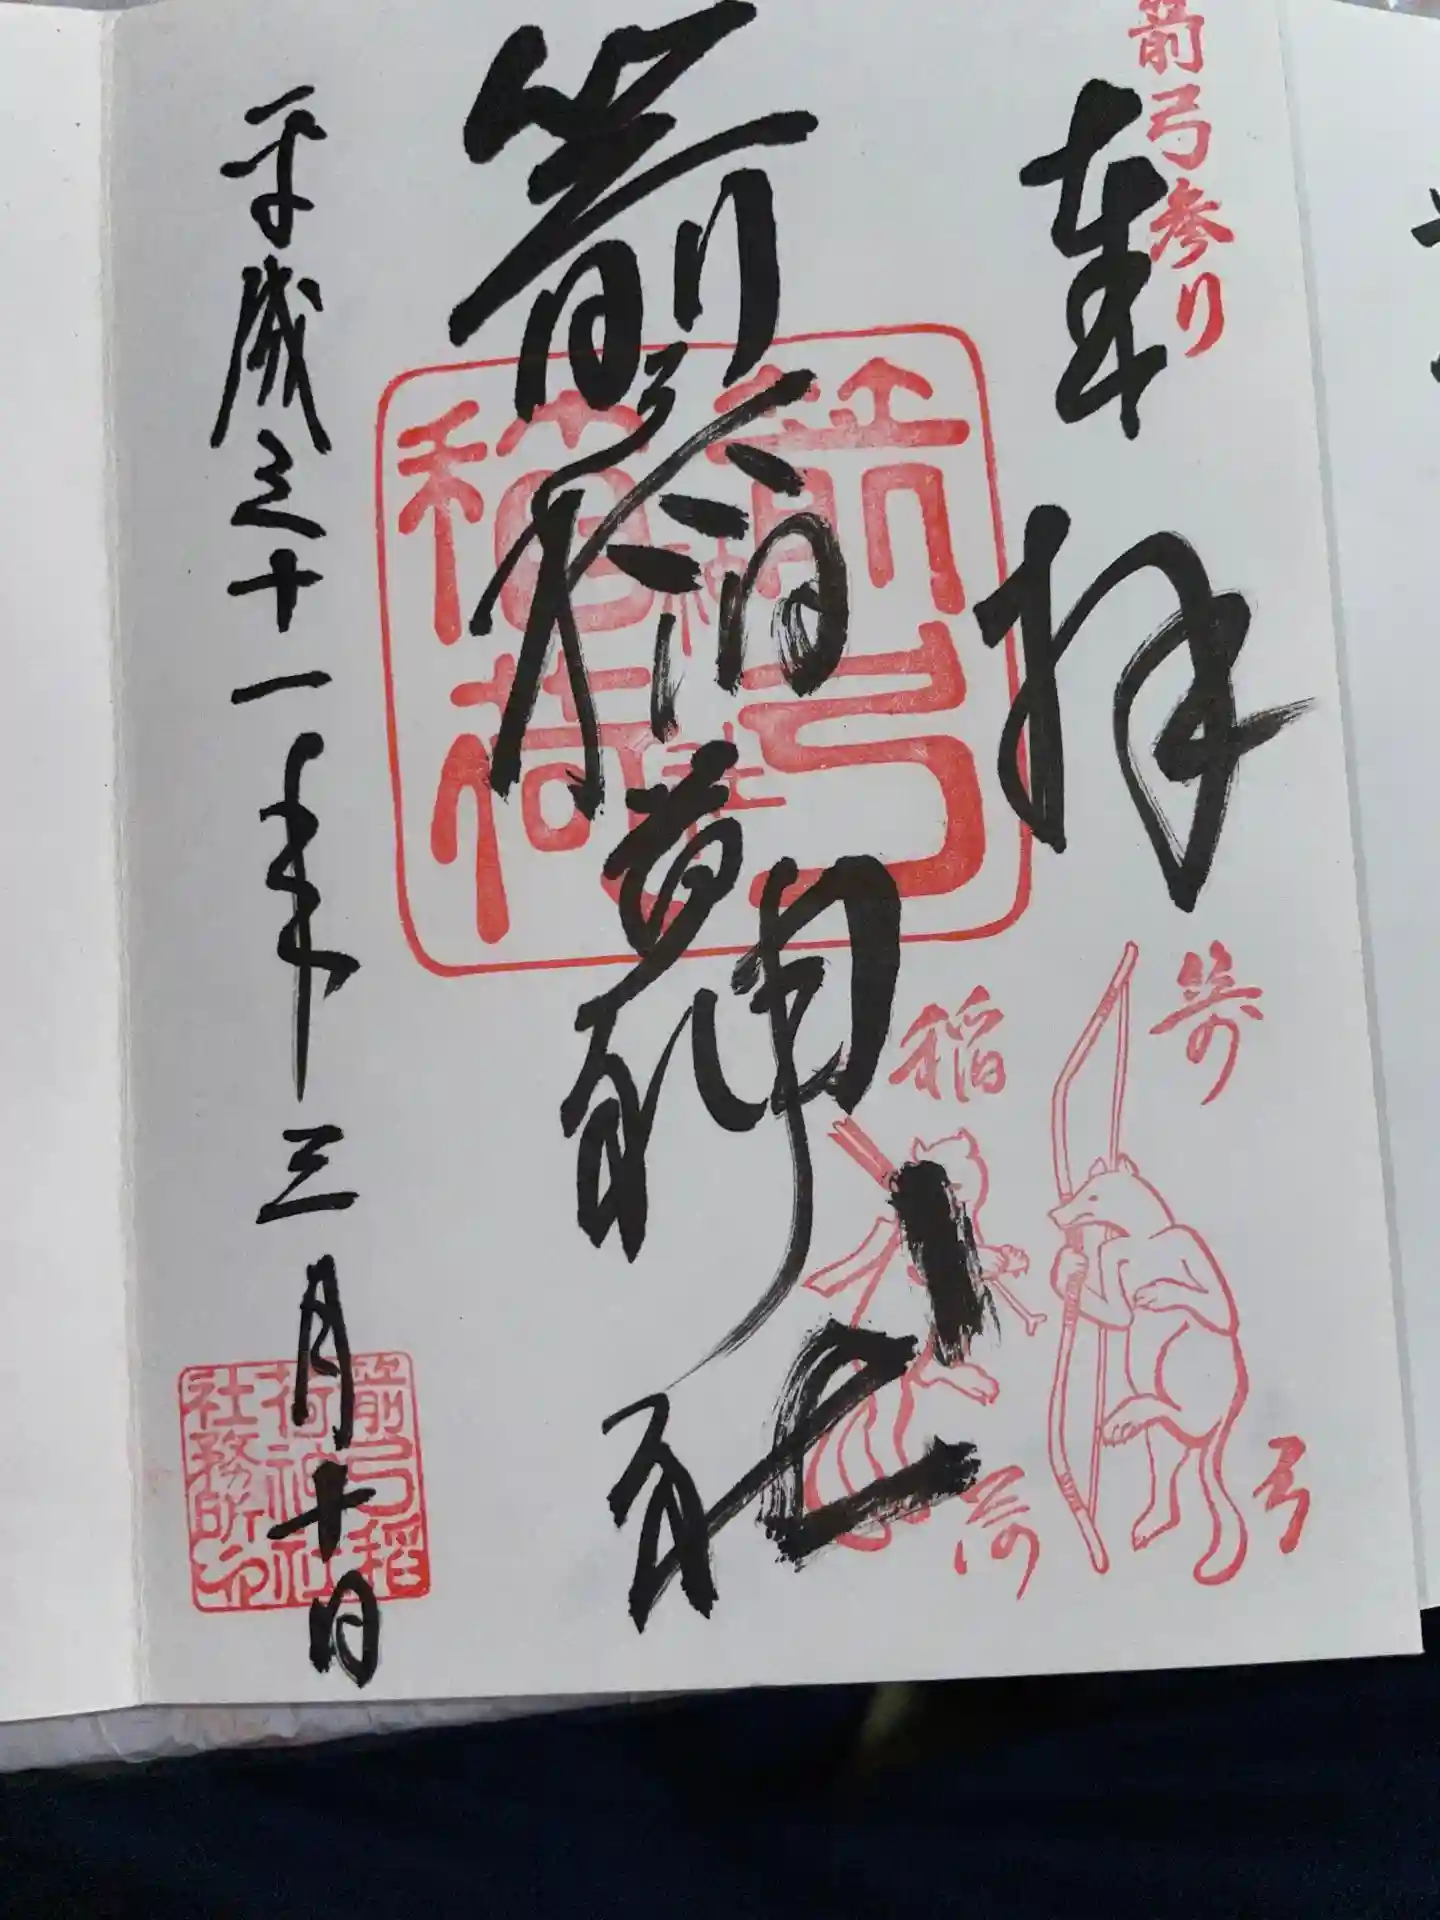 箭弓参り
奉拝
箭弓稲荷神社
平成三十一年三月十日
箭弓
稲荷
神社
箭弓
稲荷
箭弓稲
荷神社
社務所印